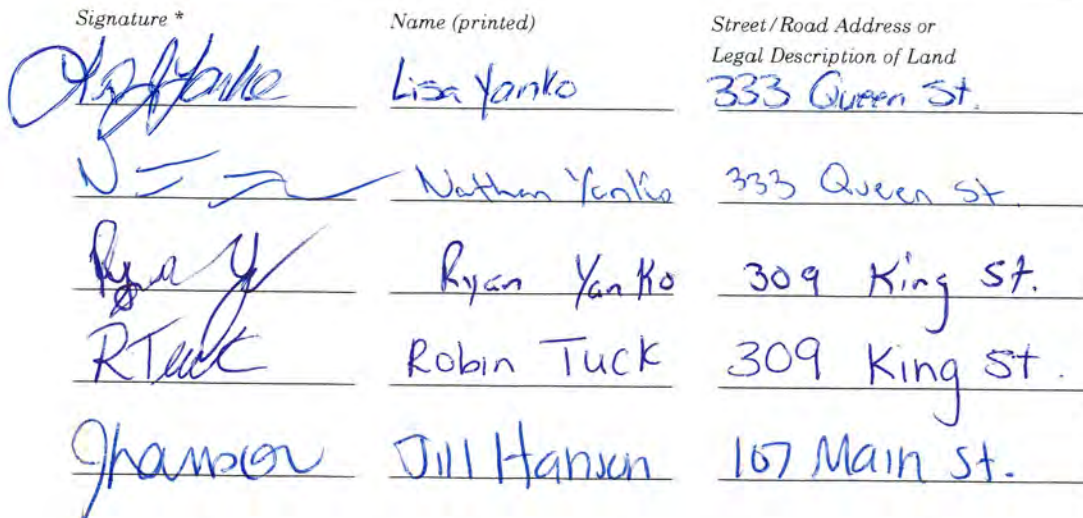 Signature * Name (printed) Street/Road Address or
Legal Description of Land
Lisa Yanko 333 Queen St.
Nathan Yanko 333 Queen St
Ryan Y Ryan Yanko 309 King St.
R Tuck Robin Tuck 309 King St.
JHanson Jill Hanson 107 Main St.